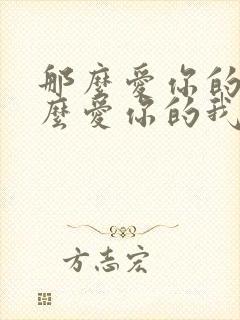 那麼愛你的
麼愛你的我
方志宏